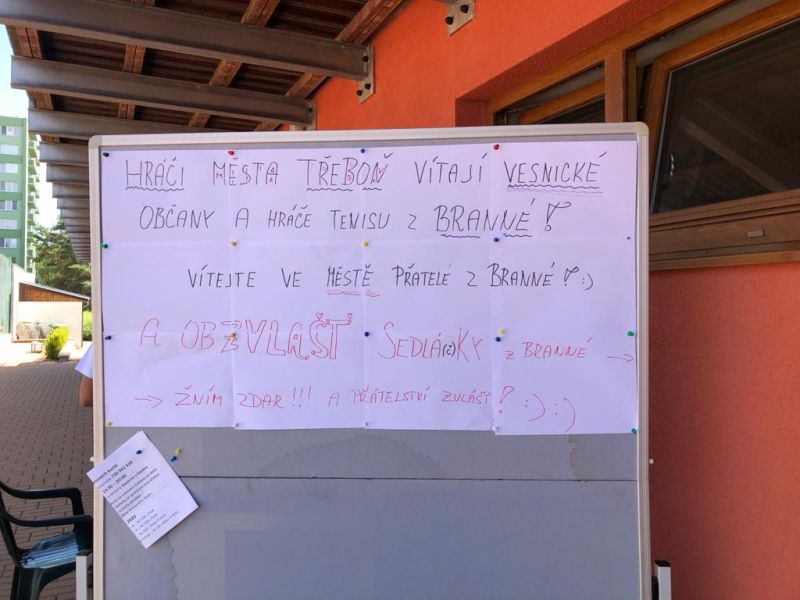 HRÁČI MĚSTA TŘEBOŇ VÍTAJÍ VESNICKÉ
OBČANY A HRÁČE TENISU Z BRANNÉ!
VÍTEJTE VE MĚSTĚ PŘATELÉ Z BRANNÉ! :)
A OBZVLAŠŤ SEDLÁ(č)KY z BRANNÉ →
→ ŽNÍM ZDAR!!! A PŘÁTELSTVÍ ZVLÁŠŤ! :) :)
2020